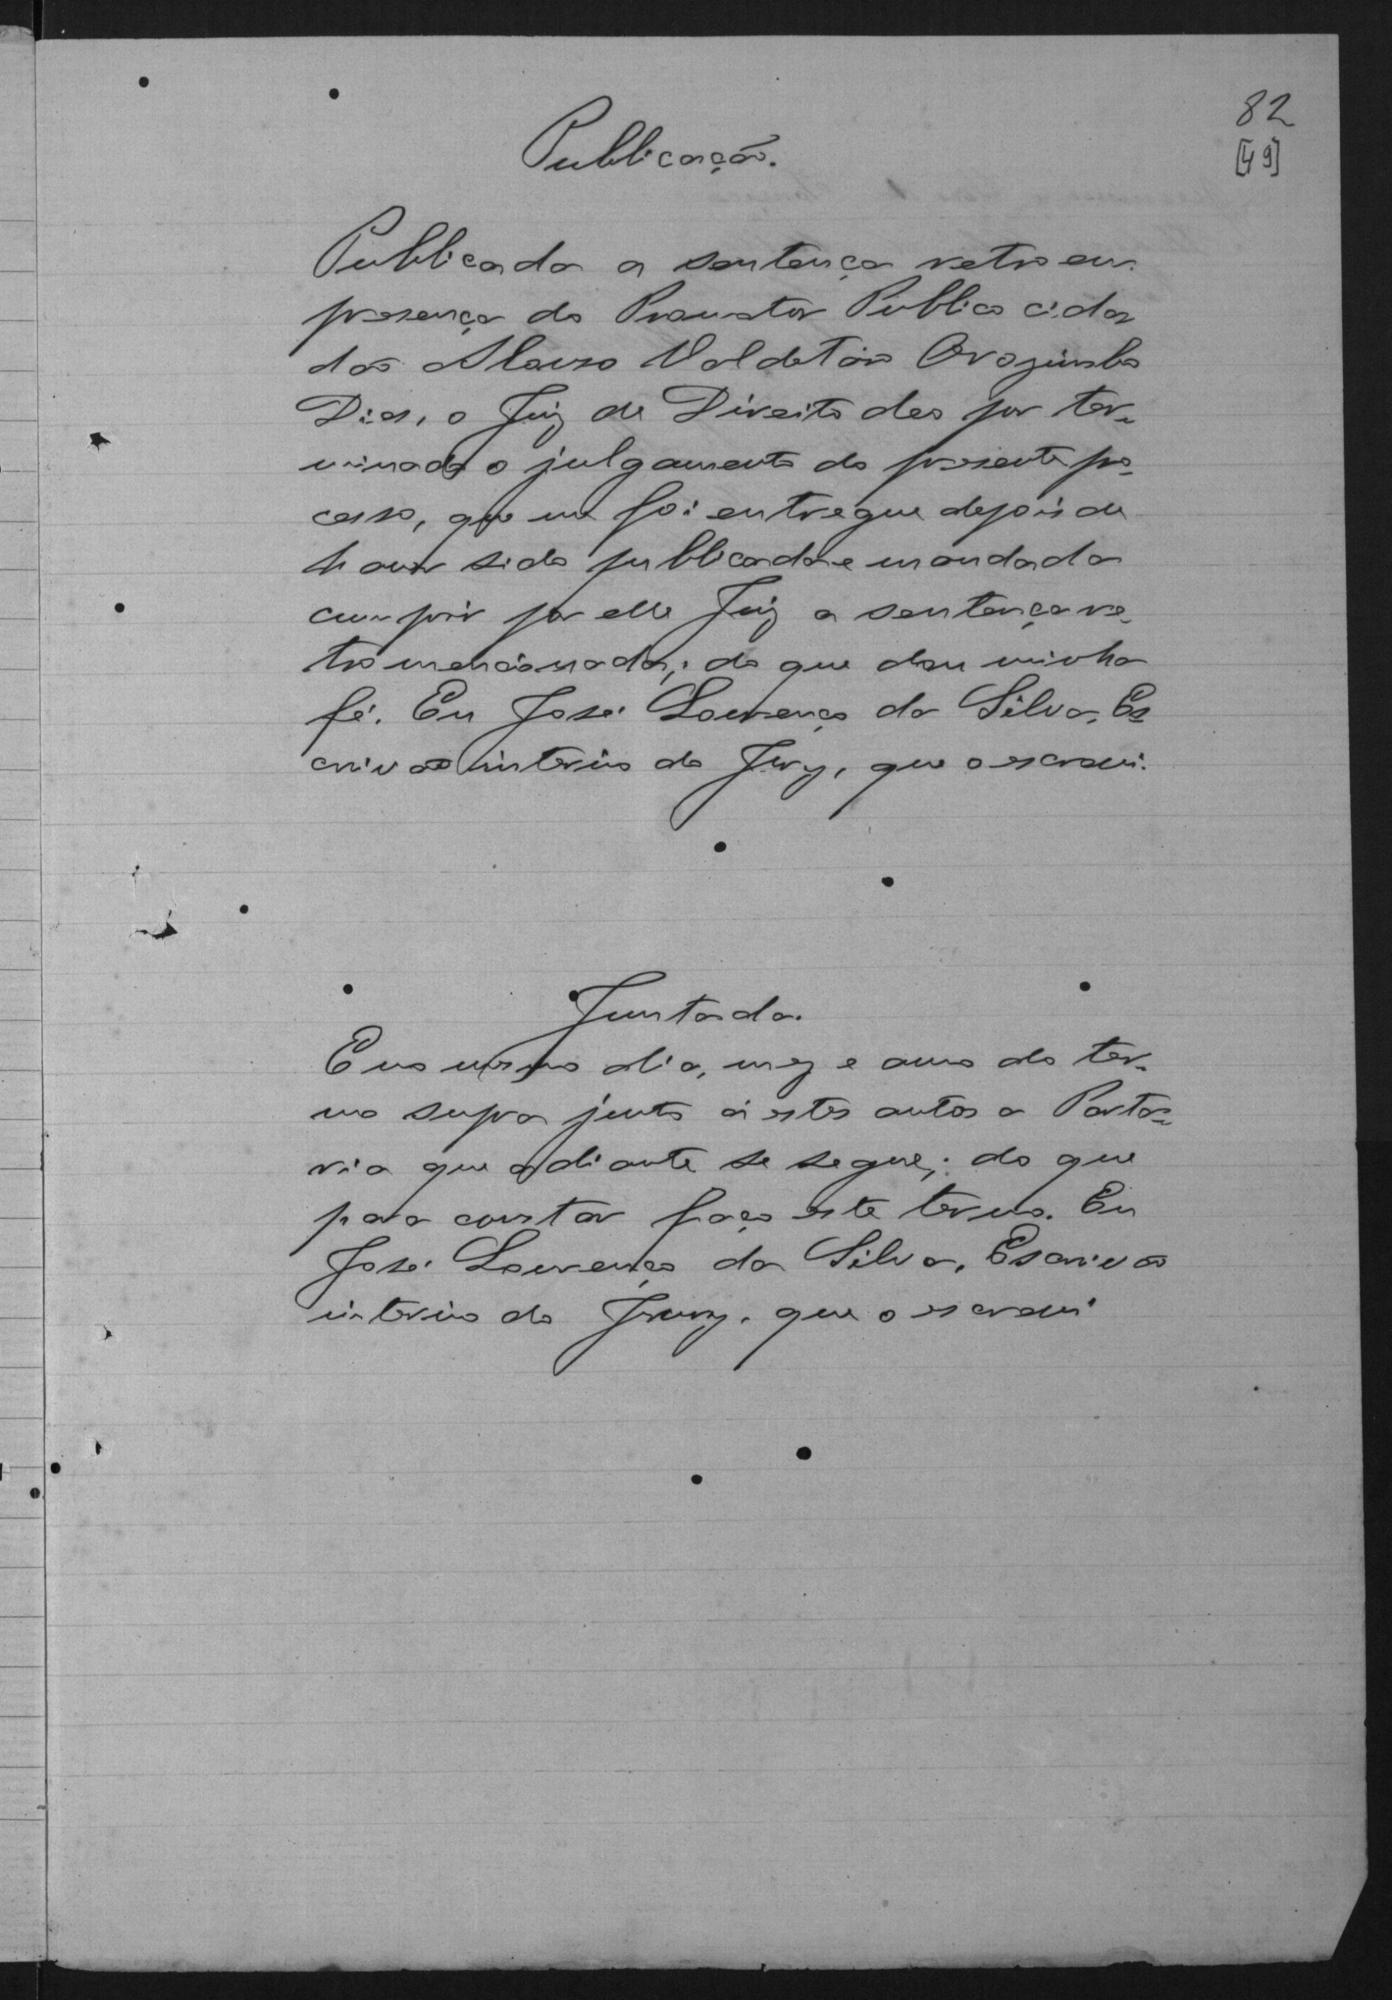 82
[49]
Publicação.
Publicada a sentença retro em
presença do Promotor Publico cida
dão Alonso Valdetáro
Dias, o Juiz de Direito deo por ter-
minado o julgamento do presente pro-
cesso, que me foi entregue depois de
haver sido publicada e mandada
cumprir por elle Juiz a sentença re-
tro mencionada; do que dou minha
fé. Eu José Lourenço da Silva, Es
crivão interino do Jury, que o escrevi.
Juntada.
E no mesmo dia, mez e anno do ter-
mo supra junto á estes autos a Porta-
ria que adiante se segue; do que
para constar faço este termo. Eu
José Lourenço da Silva, Escrivão
interino do Jury, que o escrevi